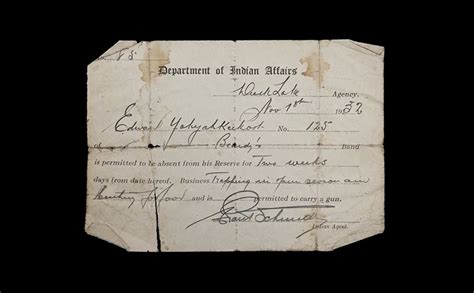 Department of Indian Affairs
Duck Lake Agency.
Nov 1st 1932
Edward Yahyahkeekoot No. 125
of Beardy's Band
is permitted to be absent from his Reserve for Two weeks
days from date hereof. Business Trapping in open season and
hunting for food and is permitted to carry a gun.
Indian Agent.